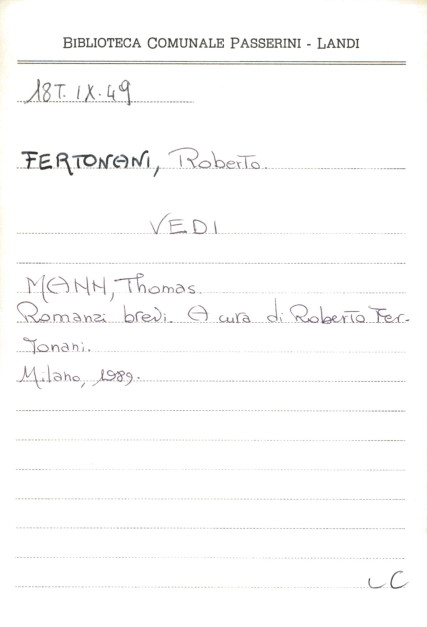 BIBLIOTECA COMUNALE PASSERINI - LANDI
18T. IX. 49
FERTONANI, Roberto.
VEDI
MANN, Thomas.
Romanzi brevi. A cura di Roberto Fer-
tonani.
Milano, 1989.
LC